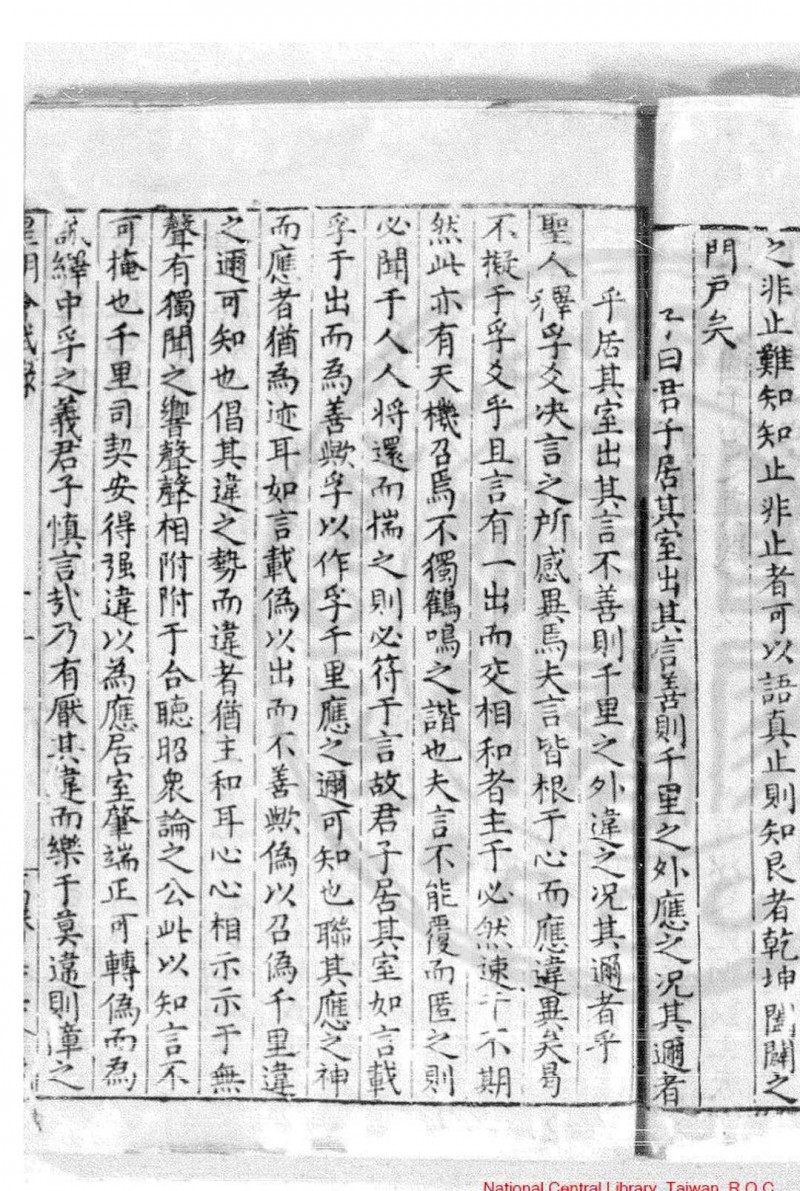 之非止難知知止非止者可以語真止則知艮者乾坤闔闢之
門戶矣
子曰君子居其室出其言善則千里之外應之况其邇者
乎居其室出其言不善則千里之外違之况其邇者乎
聖人釋孚爻决言之所感異焉夫言皆根于心而應違異矣曷
不擬于孚爻乎且言有一出而交相和者主于必然速于不期
然此亦有天機召焉不獨鶴鳴之諧也夫言不能覆而匿之則
必聞于人人将還而揣之則必符于言故君子居其室如言載
孚于出而為善歟孚以作孚千里應之邇可知也聯其應之神
而應者猶為迹耳如言載偽以出而不善歟偽以召偽千里違
之邇可知也倡其違之勢而違者猶主和耳心心相示示于無
聲有獨聞之響聲聲相附附于合聽昭衆論之公此以知言不
可掩也千里司契安得强違以為應居室肇端正可轉偽而為
誠繹中孚之義君子慎言哉乃有厭其違而樂于莫違則漳之
皇明會試錄